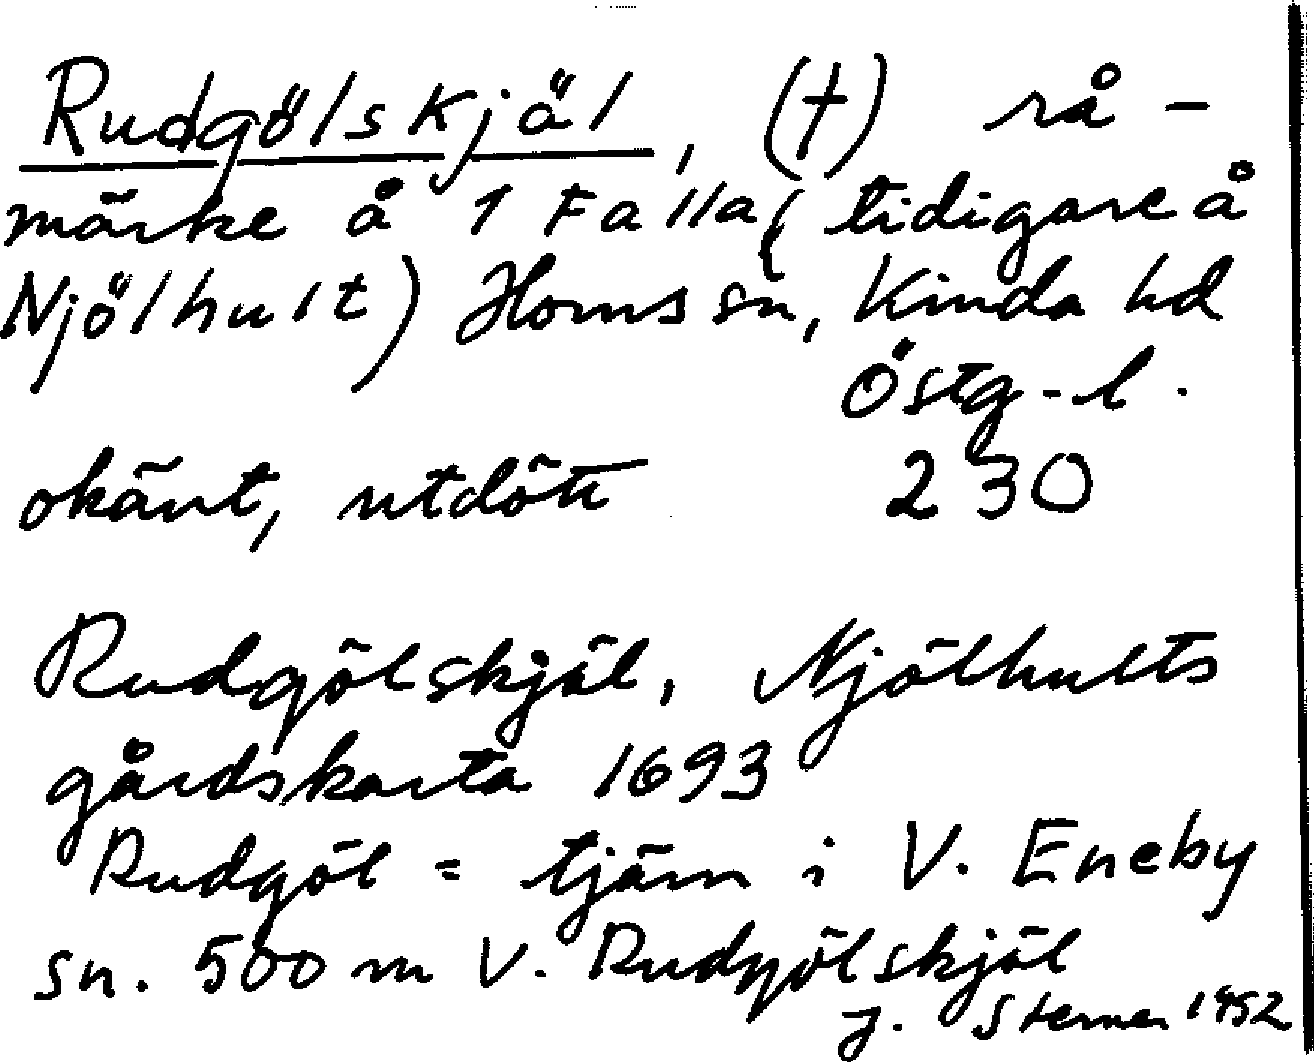 Rudgölskjäl, (†) rå-
märke å 1 Falla (tidigare å
Njölhult) Horns sn, Kinda hd
Östg-l.
okänt, utdött 230
Rudgölskjäl, Njölhults
gårdskarta 1693
Rudgöl = tjärn i V. Eneby
sn. 500 m V. Rudgölskjäl
J. Sterner 1952